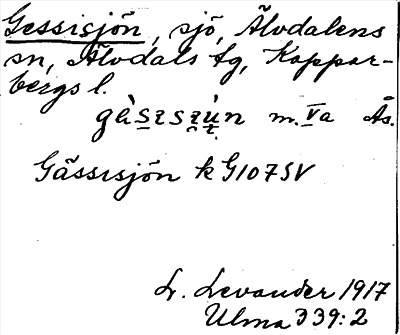 Gessisjön, sjö, Älvdalens
sn, Älvdals tg, Koppar-
bergs l.
m. Va Ås.
Gässisjön k G107SV
L. Levander 1917
Ulma 339:2